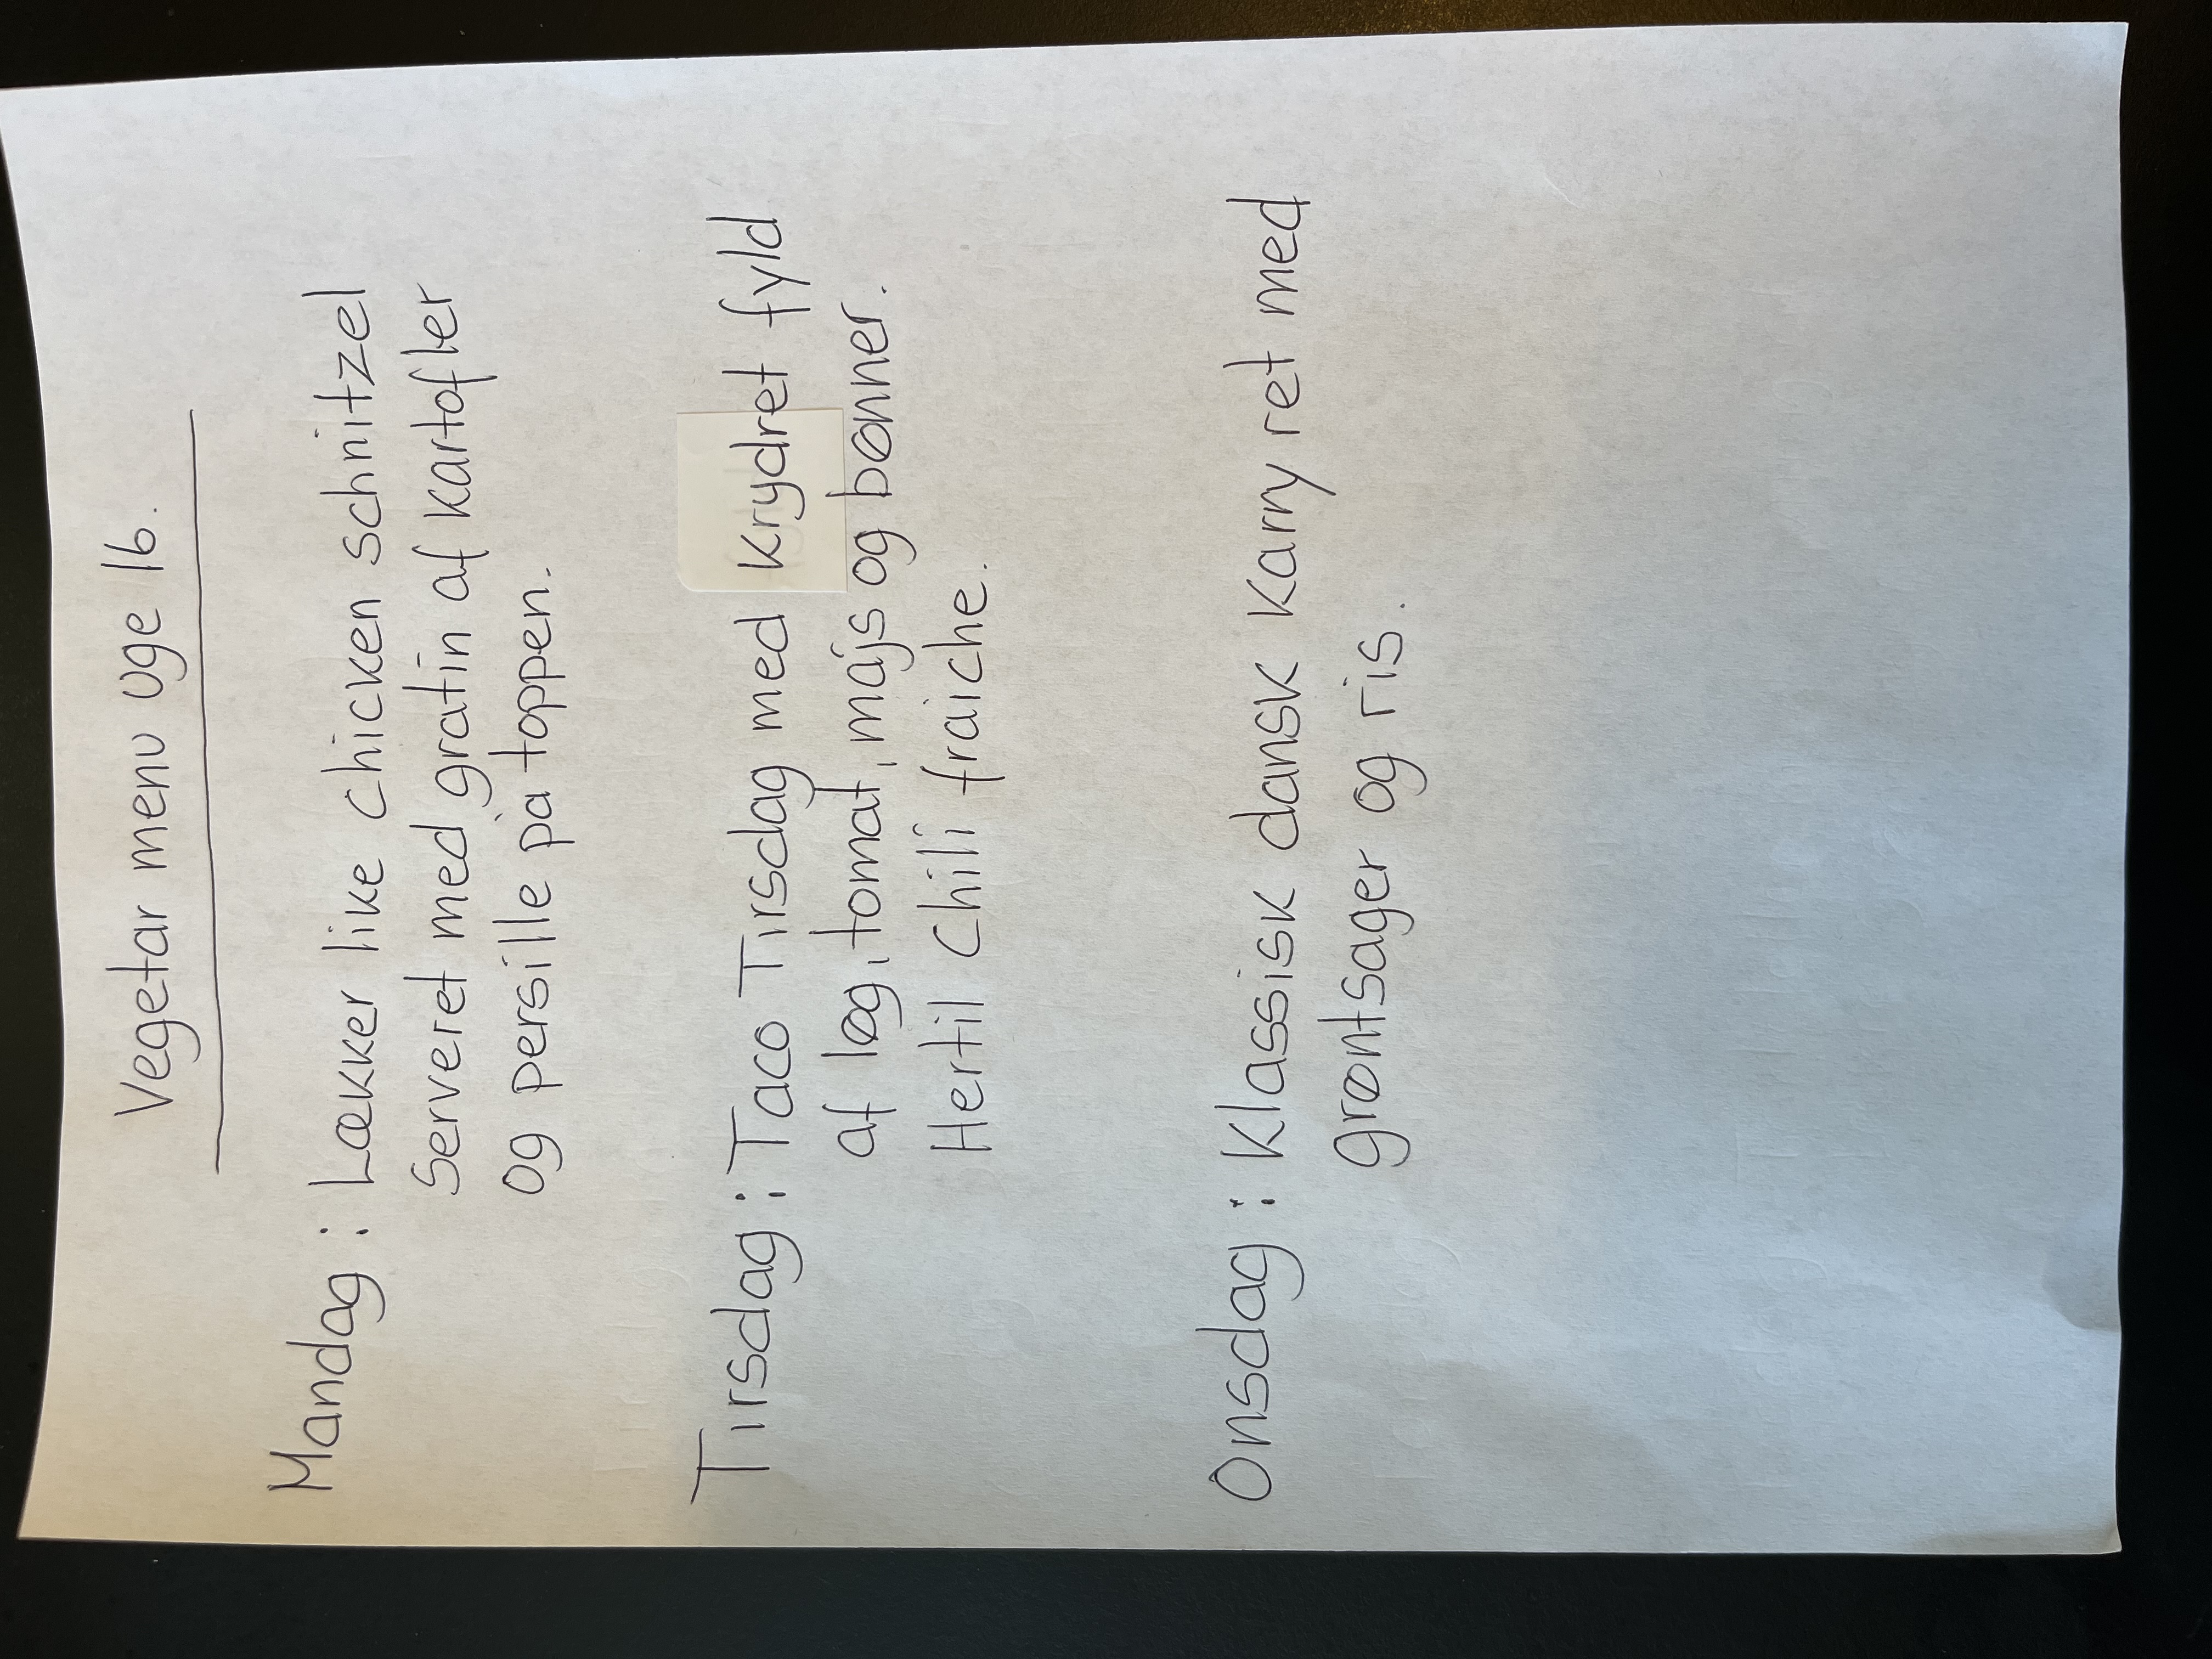 Vegetar menu uge 16.
Mandag: Lækker like chicken schnitzel
Serveret med gratin af kartofler
og persille på toppen.
Tirsdag: Taco Tirsdag med krydret fyld
af løg, tomat, majs og bønner.
Hertil Chili fraiche.
Onsdag: Klassisk dansk karry ret med
grøntsager og ris.